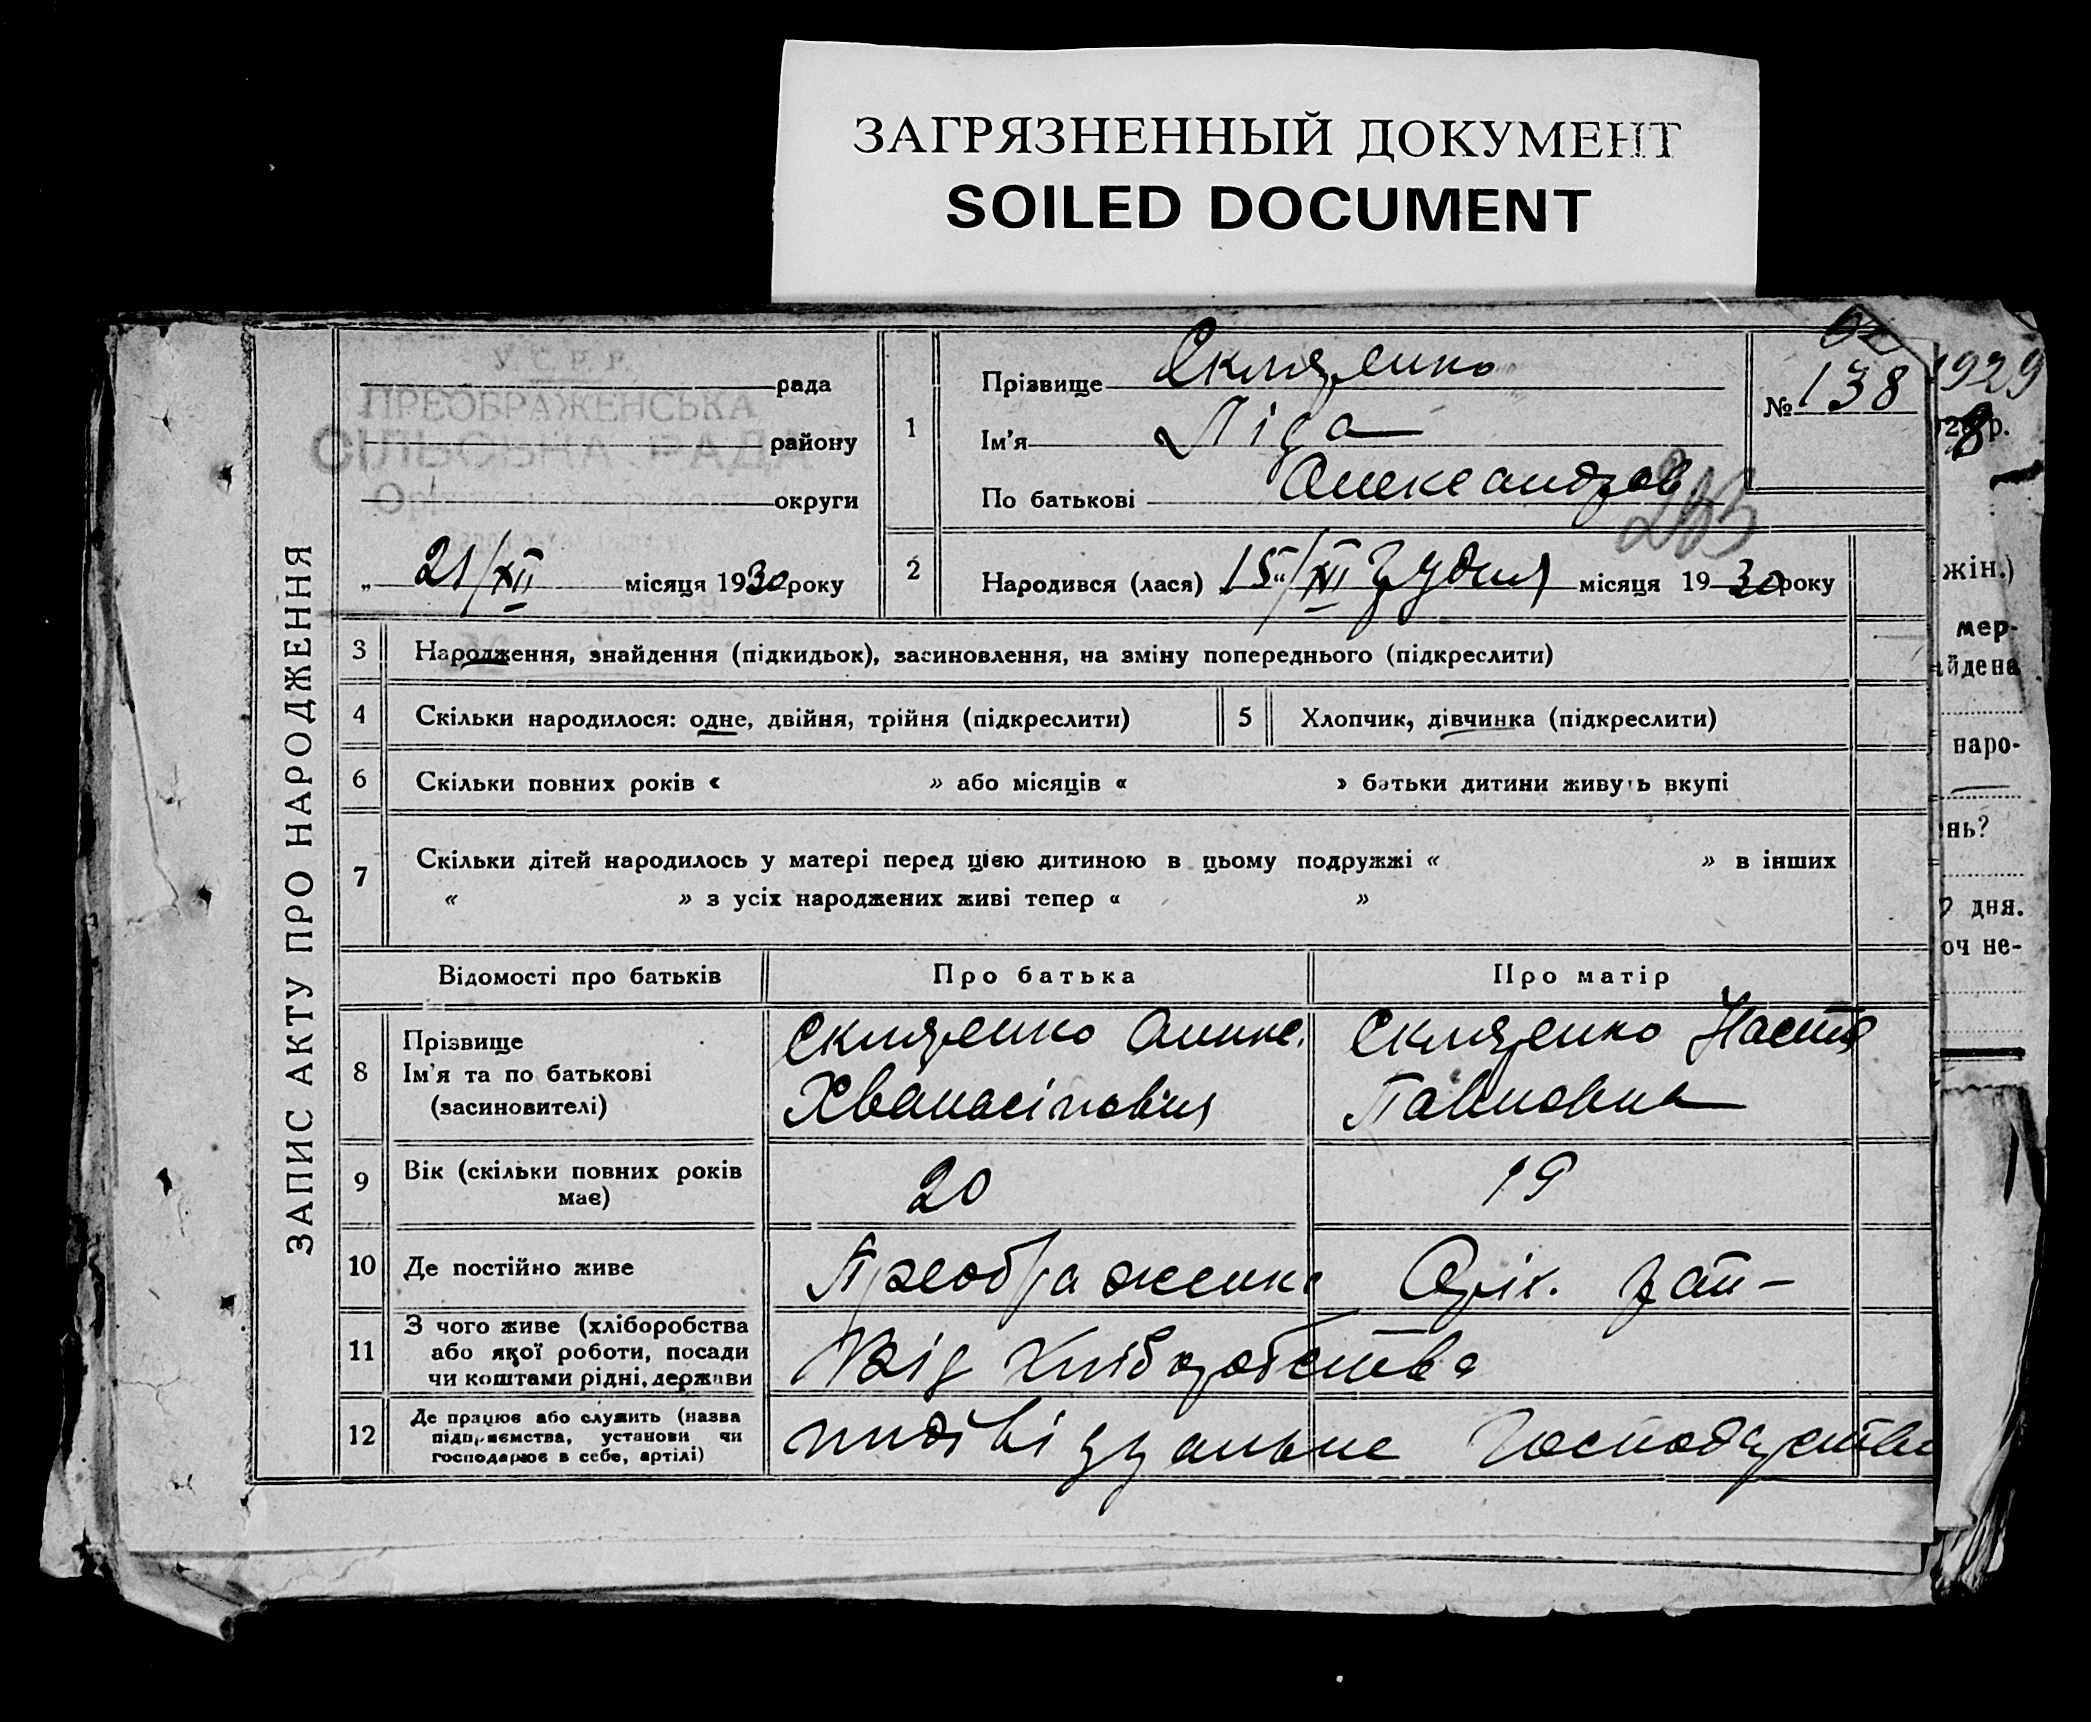 ЗАГРЯЗНЕННЫЙ ДОКУМЕНТ
SOILED DOCUMENT
ЗАПИС АКТУ ПРО НАРОДЖЕННЯ
У. С. Р. Р.
ПРЕОБРАЖЕНСЬКА
СІЛЬСЬКА РАДА
рада
району
округи
„ 21/XII місяця 1930 року
1
Прізвище Скляренко
Ім'я Ліда
По батькові Олександров
№ 138
263
2
Народився (лася) 15"/XII грудня місяця 1930 року
3 Народження, знайдення (підкидьок), засиновлення, на зміну попереднього (підкреслити)
4 Скільки народилося: одне, двійня, трійня (підкреслити)
5 Хлопчик, дівчинка (підкреслити)
6 Скільки повних років « » або місяців « » батьки дитини живуть вкупі
7 Скільки дітей народилось у матері перед цією дитиною в цьому подружжі « » в інших
« » з усіх народжених живі тепер « »
Відомості про батьків Про батька Про матір
8 Прізвище
Ім'я та по батькові
(засиновителі)
Скляренко
Хванасіповіч
Скляренко Настя
Павловна
9 Вік (скільки повних років
має)
20 19
10 Де постійно живе Преображенка Оріх. рай-
11 З чого живе (хліборобства
або якої роботи, посади
чи коштами рідні, держави
Від хліборобства
12 Де працює або служить (назва
підприємства, установи чи
господарює в себе, артілі)
індівідуальне господарство
1929
р.
жін.)
мер-
айдена
наро-
нь?
дня.
оч не-